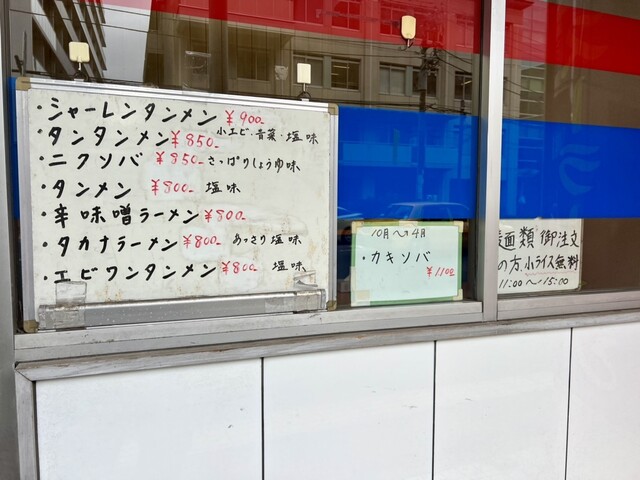 ・シャーレンタンメン ¥900-
小エビ・青菜・塩味
・タンタンメン ¥850-
・ニクソバ ¥850- さっぱりしょうゆ味
・タンメン ¥800- 塩味
・辛味噌ラーメン ¥800-
・タカナラーメン ¥800- あっさり塩味
・エビワンタンメン ¥800- 塩味
10月〜4月
・カキソバ
¥1100
麺類御注文
の方、小ライス無料
11:00〜15:00